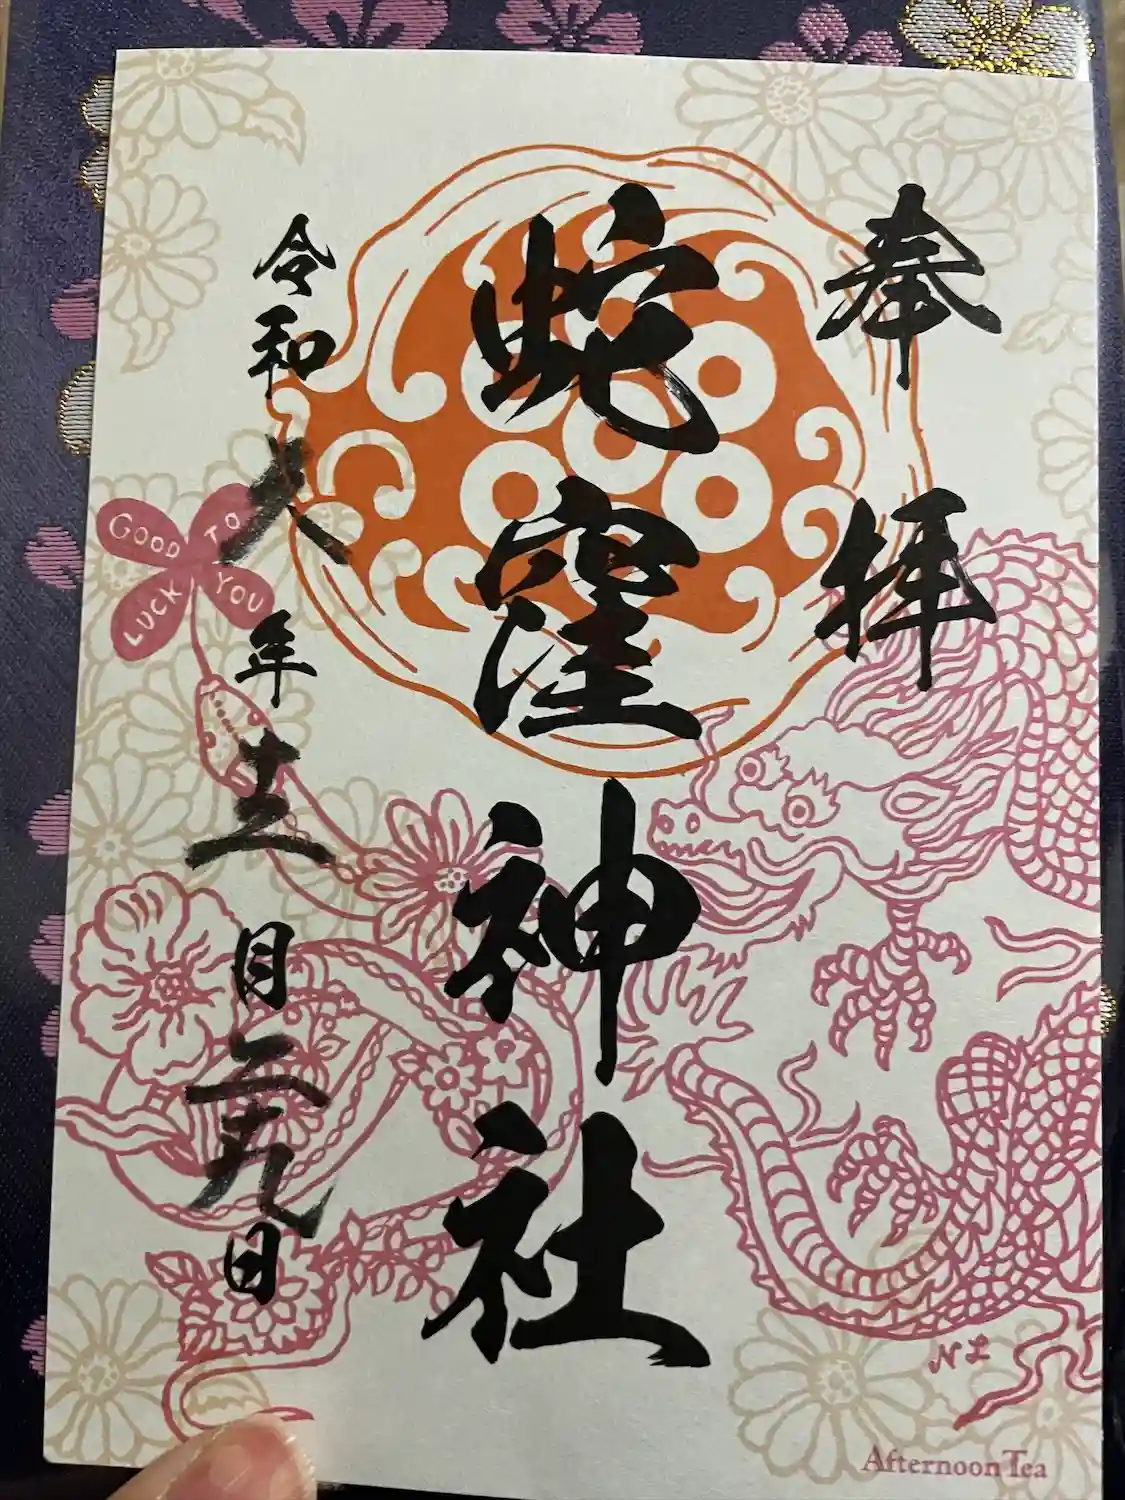 奉拝
蛇窪神社
令和六年十二月二九日
GOOD
LUCK
TO
YOU
NL
Afternoon Tea